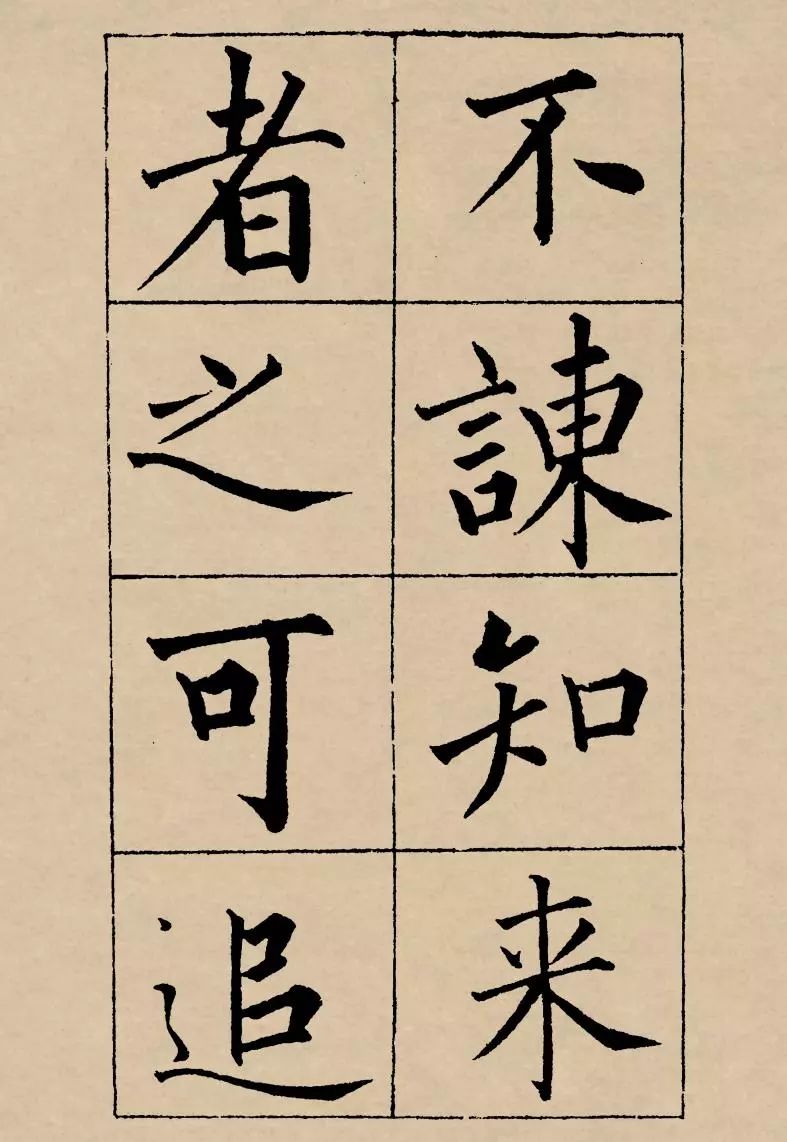 不諌知来
者之可追